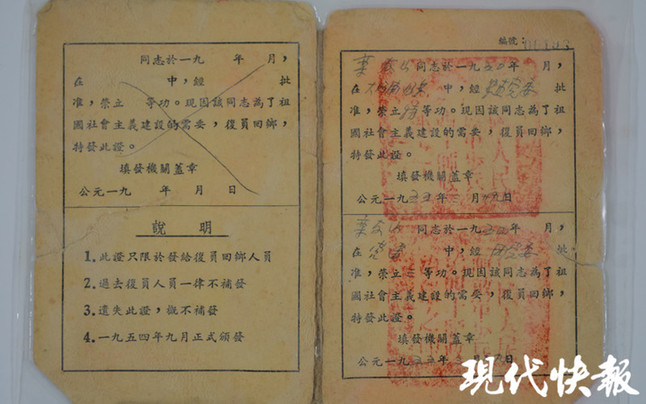 同志於一九 年 月，
在 中，經 批
准，榮立 等功。現因該同志為了祖
國社會主義建設的需要，復員回鄉，
特發此證。
填發機關蓋章
公元一九 年 月 日
說明
1．此證只限於發給復員回鄉人員
2．過去復員人員一律不補發
3．遺失此證，概不補發
4．一九五四年九月正式頒發
編號：
同志於一九五 年 月，
在 中，經 党委 批
准，榮立特等功。現因該同志為了祖
國社會主義建設的需要，復員回鄉，
特發此證。
填發機關蓋章
公元一九五五年 月 日
同志於一九五 年 月，
在 中，經 党委 批
准，榮立三等功。現因該同志為了祖
國社會主義建設的需要，復員回鄉，
特發此證。
填發機關蓋章
公元一九五五年 月 日
人民
人民
現代快報